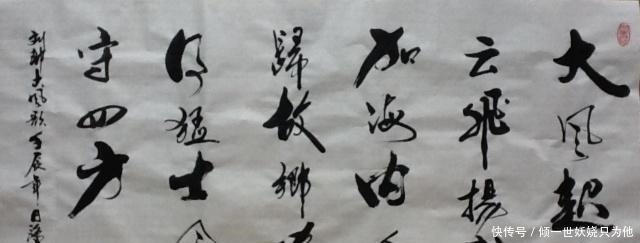 大风起
云飛揚
加海内
歸故鄉
得猛士
守四方
刘邦大风歌壬辰年
快传号 / 倾一世妖娆只为他